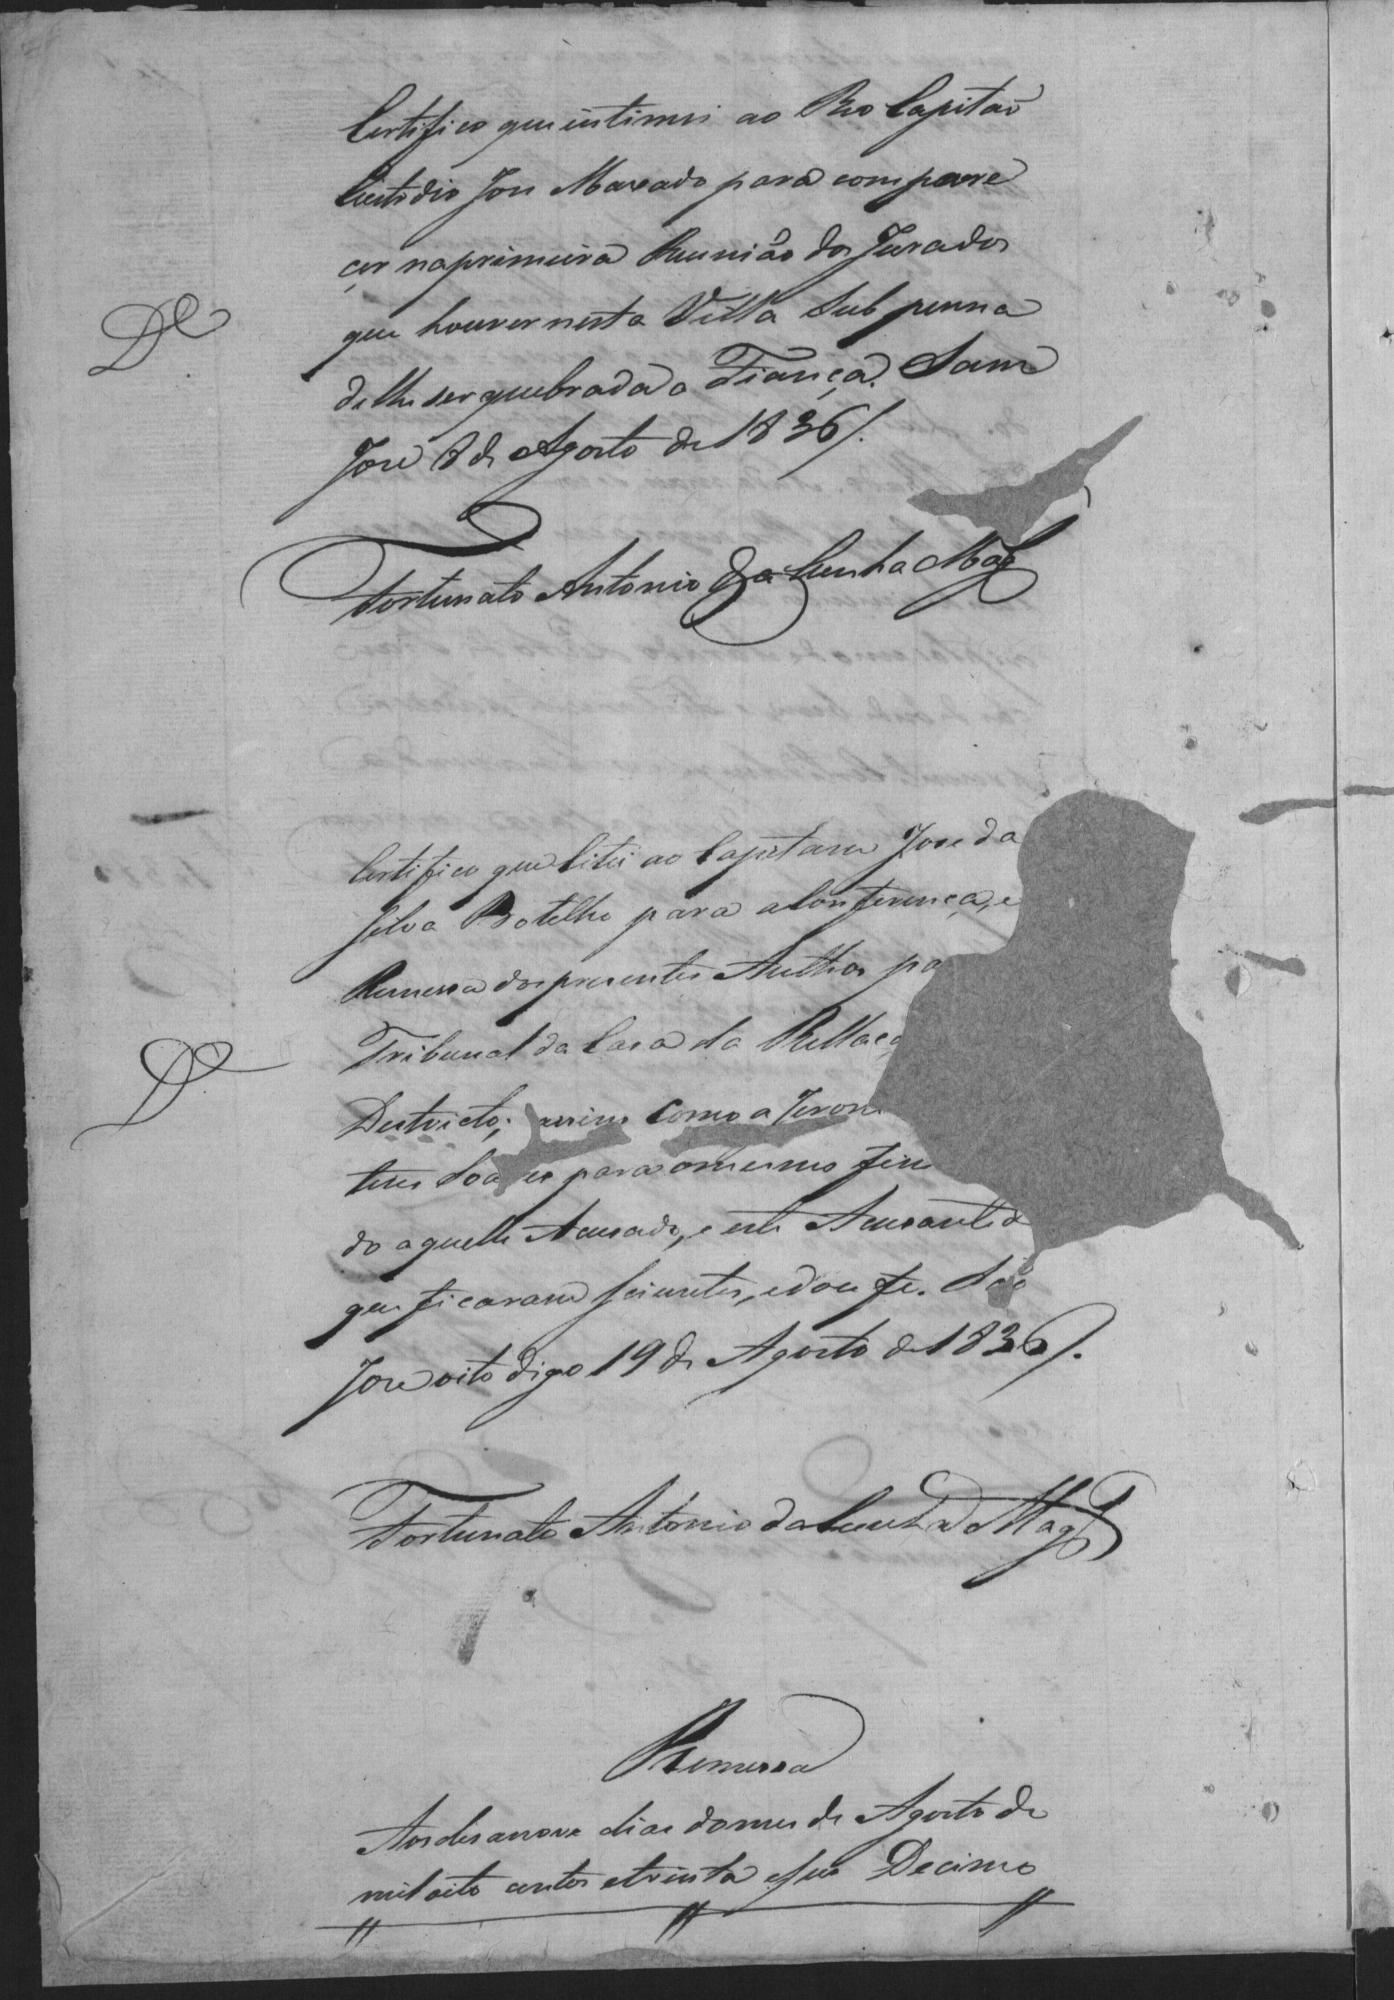 Certifico que intimei ao Reo Capitaõ
Custodio Jose Maxado para compare
cer na primeira Reunião dos Jurados
que houver nesta Villa Sub penna
de lhe ser quebrada a Fiança. Sam
Jose 8 de Agosto de 1836/.
De
Fortunato Antonio da Cunha Mag.es
Certifico que Citei ao Capitam Jose da
Silva Botelho para a Conferença, e
Remessa dos presentes Authos pa
Tribunal da Casa da Rellaçã
De
Destricto; assim como a Jeron
teiis Soares para o mesmo fim
do aquelle Acusado, e este Acusante d
que ficaram scientes, e dou fe. São
Jose oito digo 19 de Agosto de 1836/.
Fortunato Antonio da Cunha Mag.es
Remessa
Aos desanove dias do mes de Agosto de
mil oito centos e trinta e seis Decimo